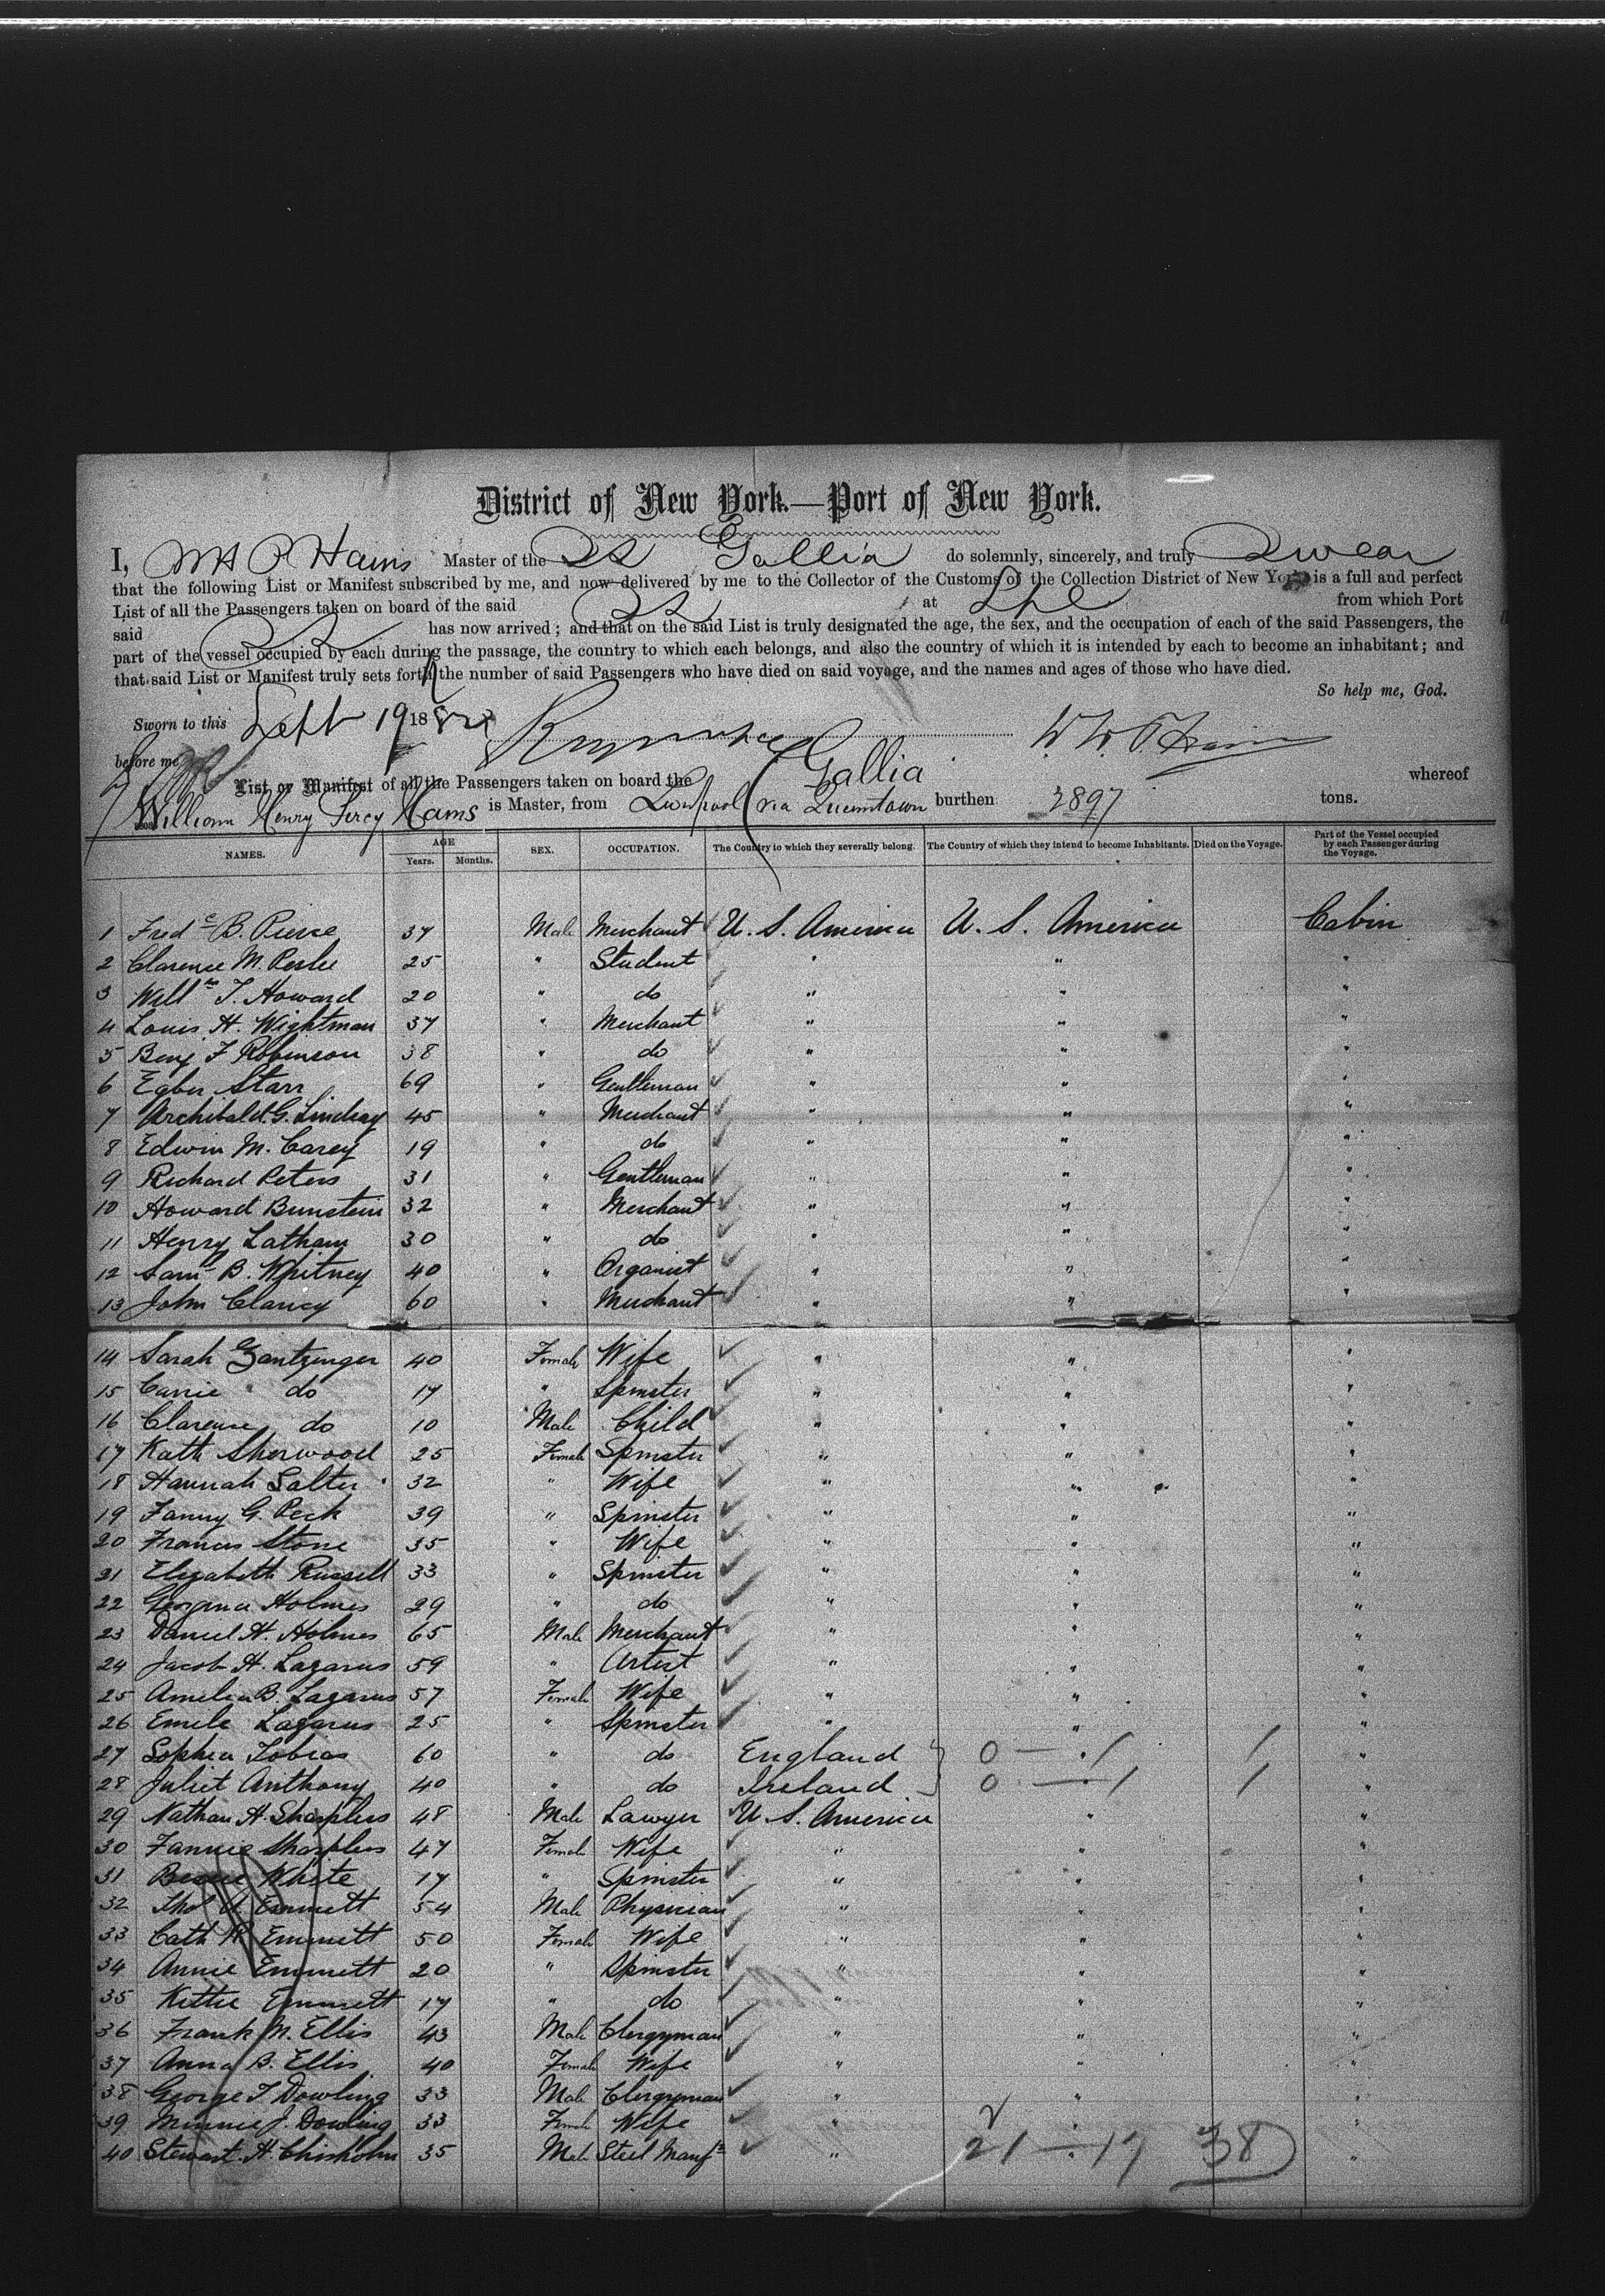 District of New York.—Port of New York.
I, W H P Hains Master of the SS Gallia do solemnly, sincerely, and truly Swear
that the following List or Manifest subscribed by me, and now delivered by me to the Collector of the Customs of the Collection District of New York is a full and perfect
List of all the Passengers taken on board of the said SS at Lpl from which Port
said SS has now arrived; and that on the said List is truly designated the age, the sex, and the occupation of each of the said Passengers, the
part of the vessel occupied by each during the passage, the country to which each belongs, and also the country of which it is intended by each to become an inhabitant; and
that said List or Manifest truly sets forth the number of said Passengers who have died on said voyage, and the names and ages of those who have died.
So help me, God.
Sworn to this Sept 19 188
before me
List or Manifest of all the Passengers taken on board the Gallia whereof
William Henry Percy Hains is Master, from Liverpool (via Queenstown burthen 2897 tons.
NAMES. AGE Years. Months. SEX. OCCUPATION. The Country to which they severally belong. The Country of which they intend to become Inhabitants. Died on the Voyage. Part of the Vessel occupied by each Passenger during the Voyage.
1 Fredc B. Pierce 37 Male Merchant U. S. America U. S. America Cabin
2 Clarence M. 25 " Student " " "
3 Willm T. Howard 20 " do " " "
4 Louis H. Wightman 37 " Merchant " " "
5 Benj F Robinson 38 " do " " "
6 Egber Starr 69 " Gentleman " " "
7 Archibald G. Lindsay 45 " Merchant " " "
8 Edwin M. Carey 19 " do " " "
9 Richard Peters 31 " Gentleman " " "
10 Howard Bunstein 32 " Merchant " " "
11 Henry Latham 30 " do " " "
12 Saml B. Whitney 40 " Organist " " "
13 John Clancy 60 " Merchant " " "
14 Sarah Gantzinger 40 Female Wife " " "
15 Carrie do 17 " Spinster " " "
16 Clarence do 10 Male Child " " "
17 Kath Sherwood 25 Female Spinster " " "
18 Hannah Salter 32 " Wife " " "
19 Fanny G. Peck 39 " Spinster " " "
20 Francis Stone 35 " Wife " " "
21 Elizabeth Russell 33 " Spinster " " "
22 Georgina Holmes 29 " do " " "
23 Daniel H. Holmes 65 Male Merchant " " "
24 Jacob H. Lazarus 59 " Artist " " "
25 Amelia B. Lazarus 57 Female Wife " " "
26 Emile Lazarus 25 " Spinster " " "
27 Sophia Tobias 60 " do England } 0 — 1 1 "
28 Juliet Anthony 40 " do Ireland } 0 — 1 1 "
29 Nathan H. Sharpless 48 Male Lawyer U. S. America " "
30 Fannie Sharpless 47 Female Wife " " "
31 Bessie White 17 " Spinster " " "
32 Thos A. Emmett 54 Male Physician " " "
33 Cath R. Emmett 50 Female Wife " " "
34 Annie Emmett 20 " Spinster " " "
35 Kittie Emmett 17 " do " " "
36 Frank M. Ellis 43 Male Clergyman " " "
37 Anna B. Ellis 40 Female Wife " " "
38 George T Dowling 33 Male Clergyman " " "
39 Minnie J. Dowling 33 Female Wife " " "
40 Stewart H. Chisholm 35 Male Steel Manfr " 21 — 17 38 "